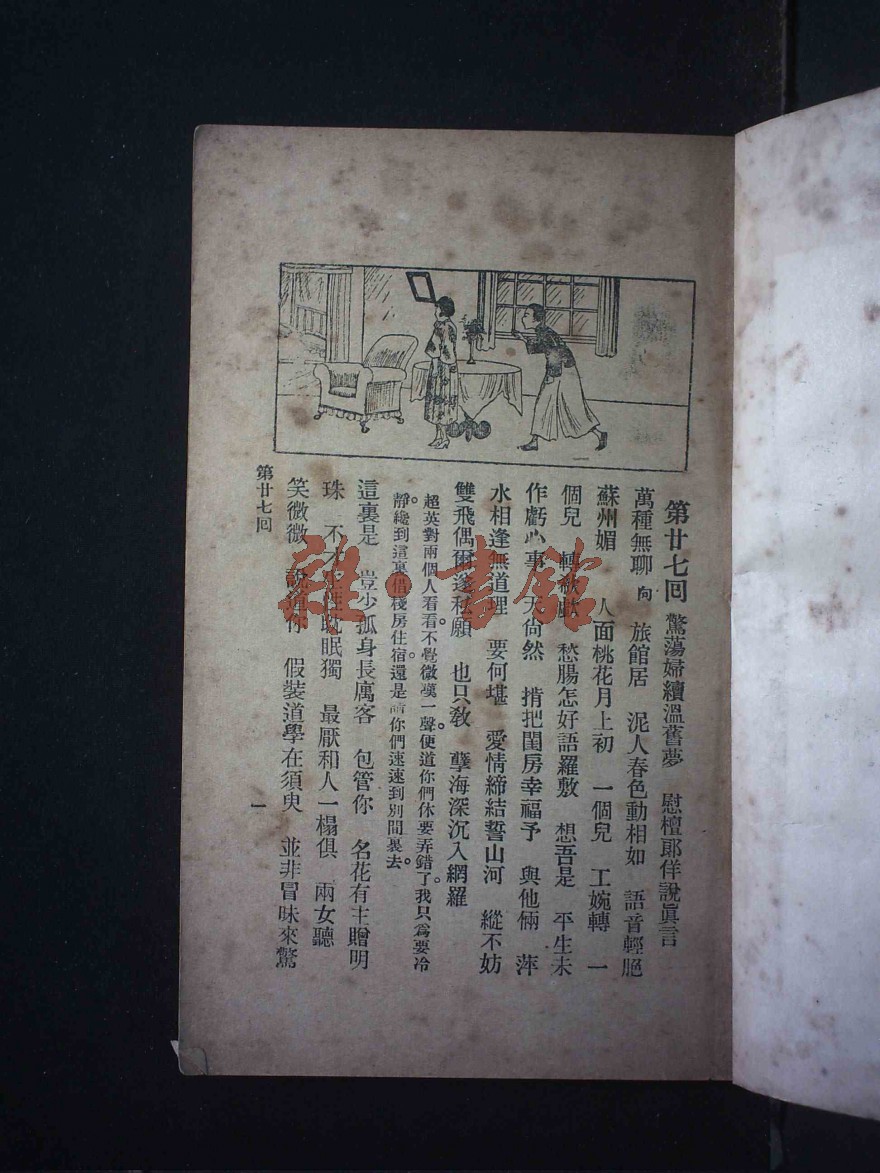 第廿七回 驚蕩婦續溫舊夢 慰檀郎佯說眞言
萬種無聊向 旅館居 泥人春色動相如 語音輕脆
蘇州媚 人面桃花月上初 一個兒 工婉轉 一
個兒 轉 愁腸怎好語羅敷 想吾是 平生未
作虧心事 天尙然 揹把閨房幸福予 與他倆 萍
水相逢無道理 要何堪 愛情締結誓山河 縱不妨
雙飛偶爾遂私願 也只敎 孽海深沉入網羅
超英對兩個人看看。不覺微嘆一聲。便道你們休要弄錯了。我只爲要冷
靜。纔到這裏借棧房住宿。還是請你們速速到別間裏去。
這裏是 豈少孤身長寓客 包管你 名花有主贈明
珠 不才 眠獨 最厭和人一榻俱 兩女聽
笑微微 說道你 假裝道學在須臾 並非冒昧來驚
第廿七回
一
雜·書館